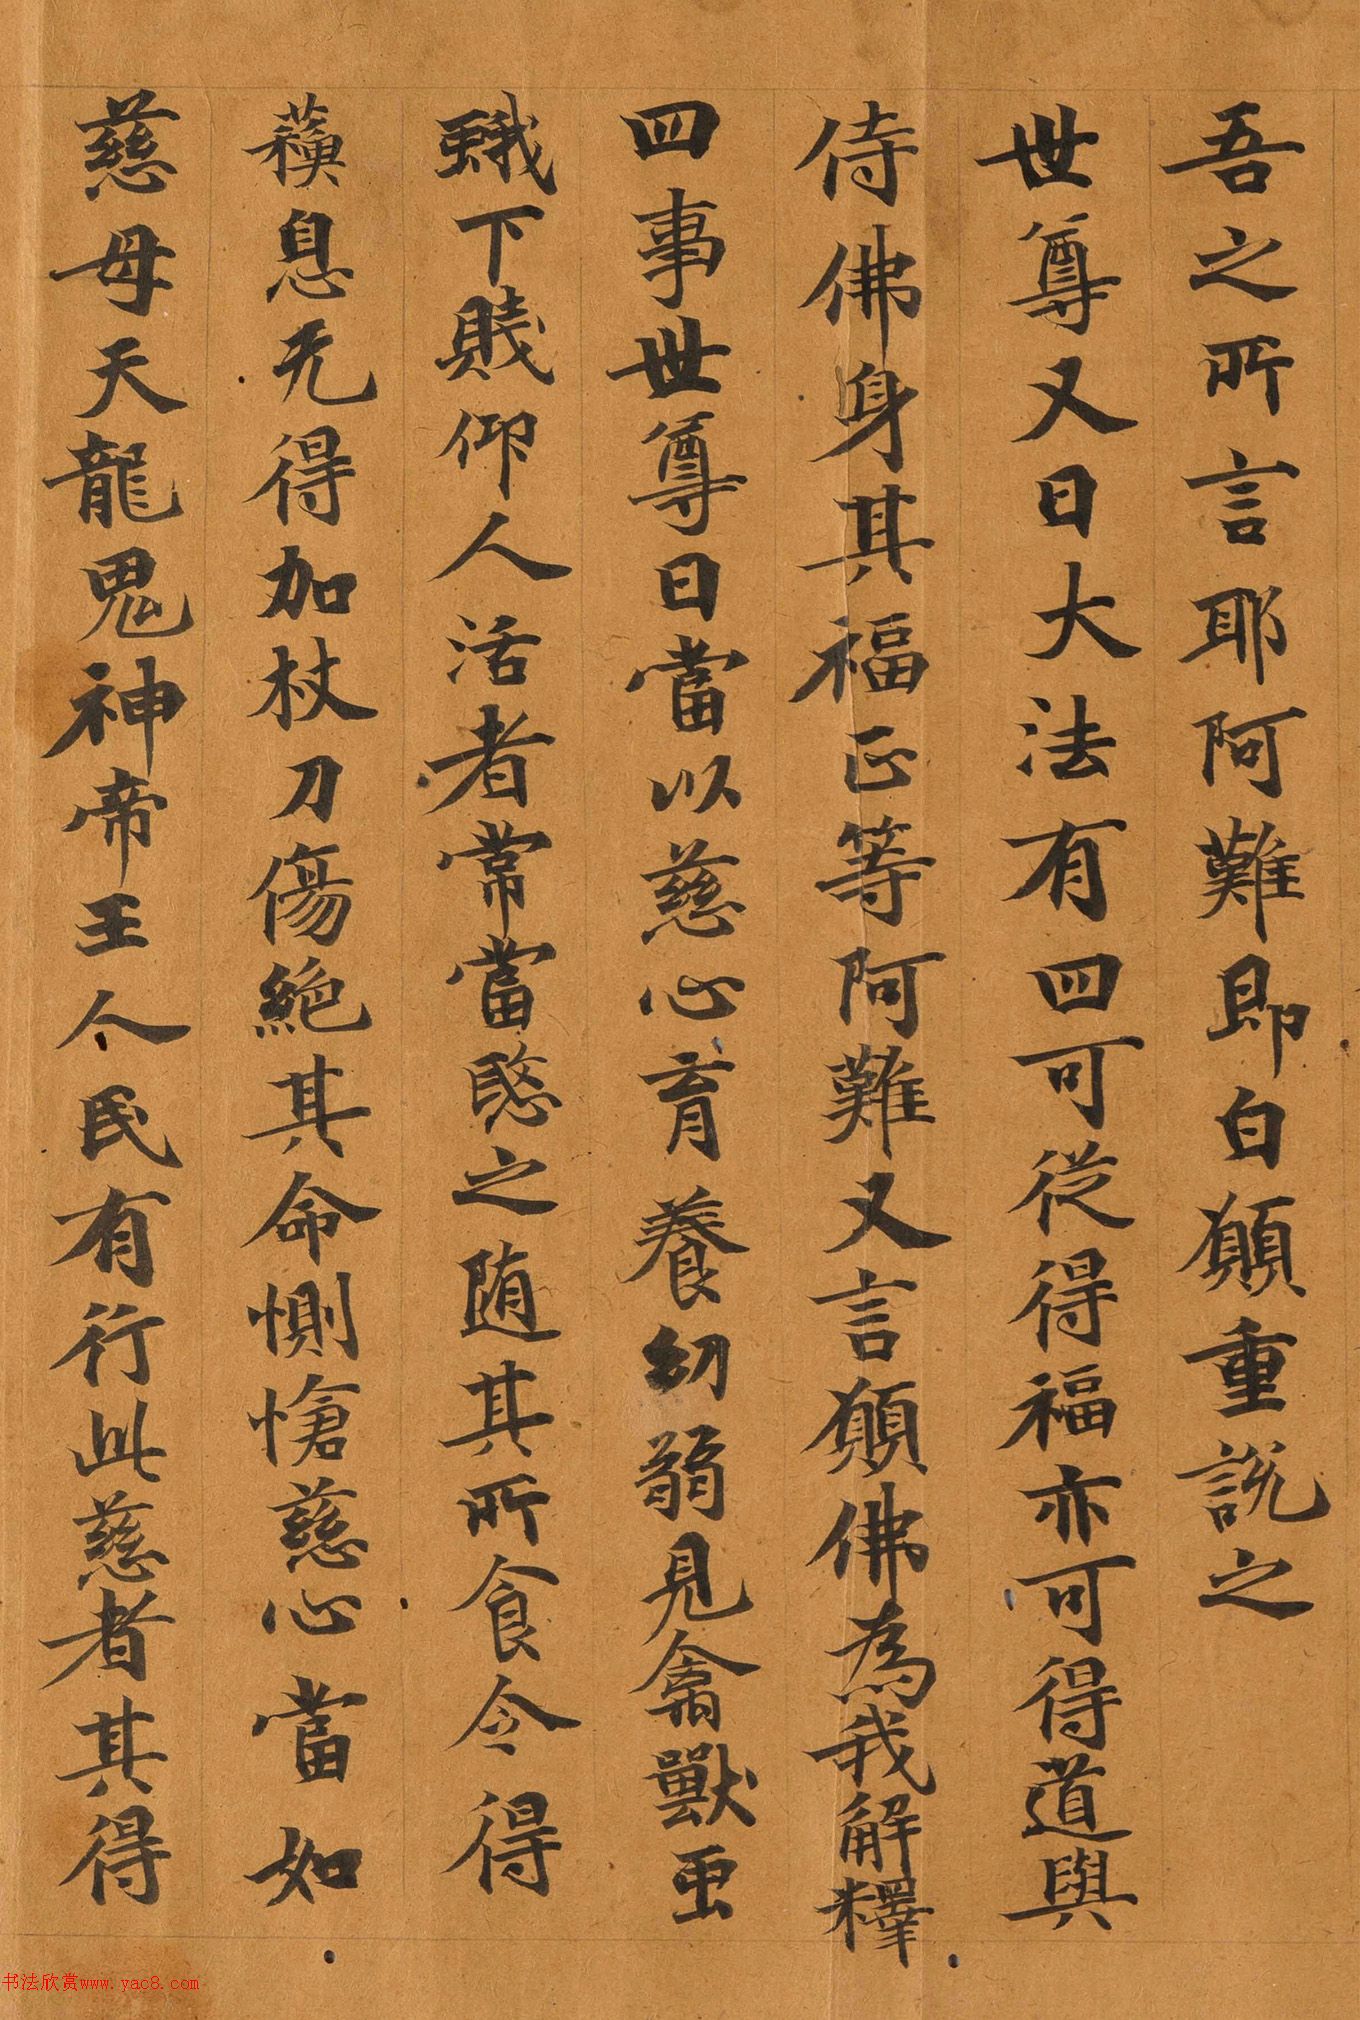 吾之所言耶阿難即白願重説之
世尊又曰大法有四可從得福亦可得道與
侍佛身其福正等阿難又言願佛為我解釋
四事世尊曰當以慈心育養幼弱見禽獸虫
蛾下賤仰人活者常當愍之随其所食令得
蘓息无得加杖刀傷絶其命惻愴慈心當如
慈母天龍鬼神帝王人民有行此慈者其得
书法欣赏www.yac8.com